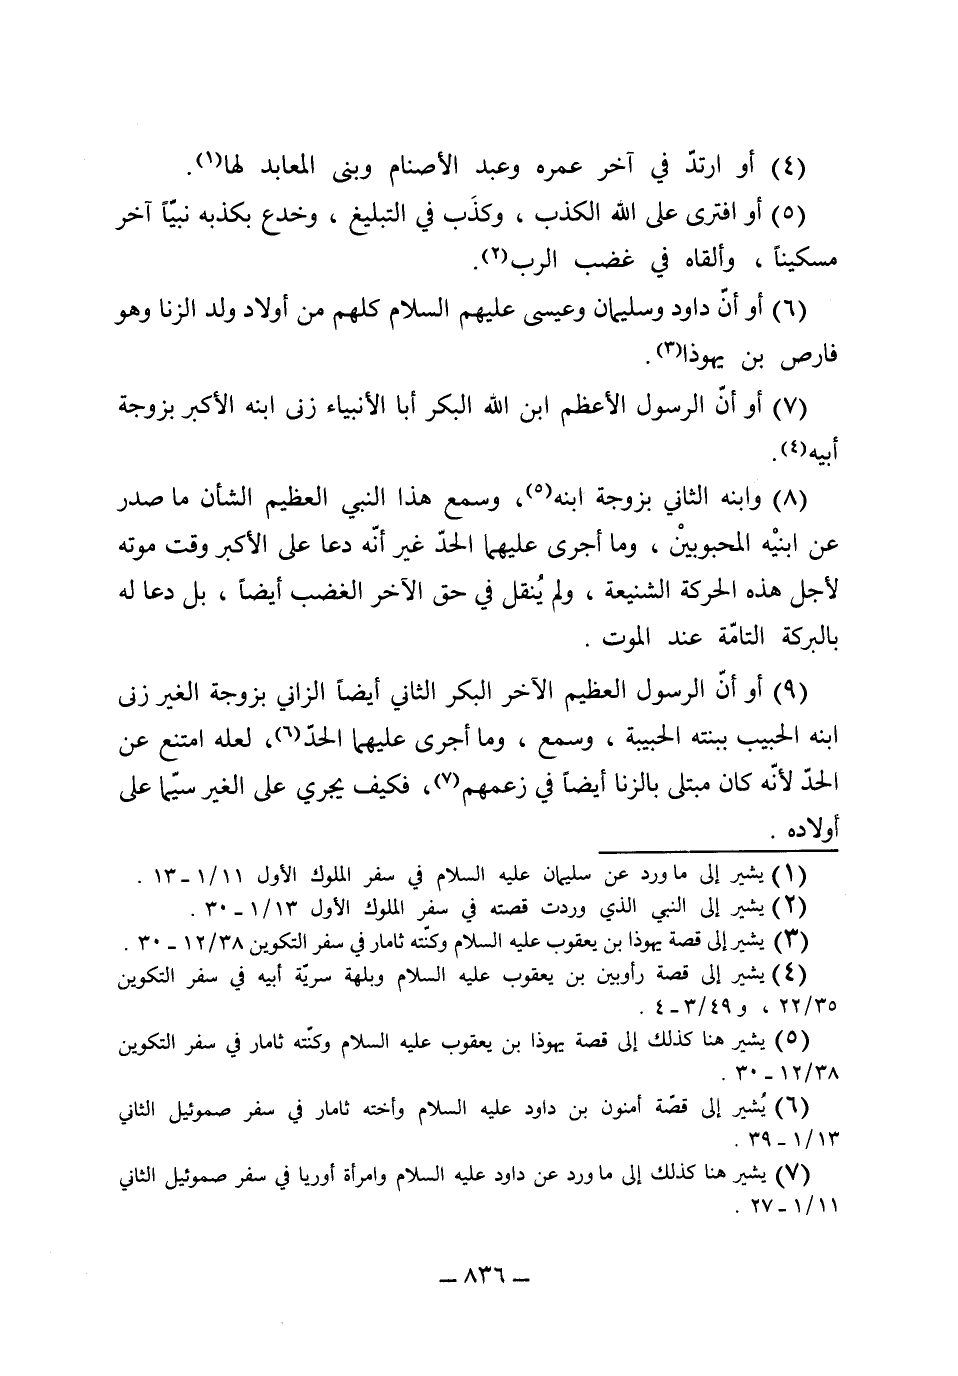 (٤) أو ارتدّ في آخر عمره وعبد الأصنام وبنى المعابد لها(١).
(٥) أو افترى على الله الكذب ، وكذَب في التبليغ ، وخدع بكذبه نبيّاً آخر
مسكيناً ، وألقاه في غضب الرب(٢).
(٦) أو أنّ داود وسليمان وعيسى عليهم السلام كلهم من أولاد ولد الزنا وهو
فارص بن يهوذا(٣).
(٧) أو أنّ الرسول الأعظم ابن الله البكر أبا الأنبياء زنى ابنه الأكبر بزوجة
أبيه(٤).
(٨) وابنه الثاني بزوجة ابنه(٥)، وسمع هذا النبي العظيم الشأن ما صدر
عن ابنيْه المحبوبيْن ، وما أجرى عليهما الحدّ غير أنّه دعا على الأكبر وقت موته
لأجل هذه الحركة الشنيعة ، ولم يُنقل في حق الآخر الغضب أيضاً ، بل دعا له
بالبركة التامّة عند الموت .
(٩) أو أنّ الرسول العظيم الآخر البكر الثاني أيضاً الزاني بزوجة الغير زنى
ابنه الحبيب ببنته الحبيبة ، وسمع ، وما أجرى عليهما الحدّ(٦)، لعله امتنع عن
الحدّ لأنّه كان مبتلى بالزنا أيضاً في زعمهم(٧)، فكيف يجري على الغير سيّما على
أولاده .
(١) يشير إلى ما ورد عن سليمان عليه السلام في سفر الملوك الأول ١/١١ ـ ١٣ .
(٢) يشير إلى النبي الذي وردت قصته في سفر الملوك الأول ١/١٣ ـ ٣٠ .
(٣) يشير إلى قصة يهوذا بن يعقوب عليه السلام وكنّته ثامار في سفر التكوين ١٢/٣٨ ـ ٣٠ .
(٤) يشير إلى قصة رأوبين بن يعقوب عليه السلام وبلهة سريّة أبيه في سفر التكوين
٢٢/٣٥ ، و ٣/٤٩ ـ ٤ .
(٥) يشير هنا كذلك إلى قصة يهوذا بن يعقوب عليه السلام وكنّته ثامار في سفر التكوين
١٢/٣٨ ـ ٣٠ .
(٦) يُشير إلى قصّة أمنون بن داود عليه السلام وأخته ثامار في سفر صموئيل الثاني
١/١٣ ـ ٣٩ .
(٧) يشير هنا كذلك إلى ما ورد عن داود عليه السلام وامرأة أوريا في سفر صموئيل الثاني
١/١١ ـ ٢٧ .
ـ ٨٣٦ ـ